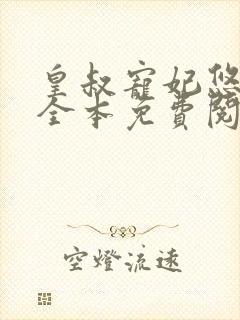 皇叔寵妃悠
全本免費閱
空燈流遠